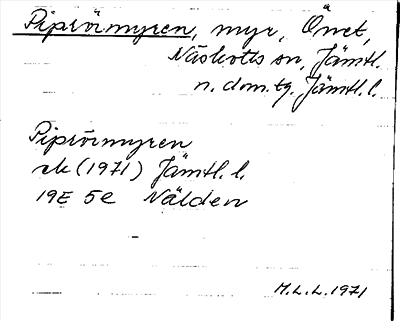 Piprörmyren, myr, Ånet,
Näskotts sn, Jämtl.
n. dom.tg. Jämtl. l.
Piprörmyren
ek (1971) Jämtl. l.
19E 5e Nälden
M.L.L. 1971